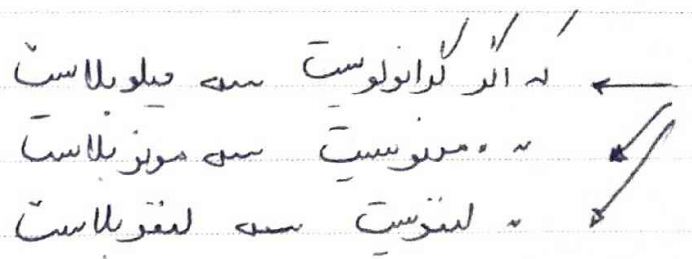 ← که اگر گرانولوسیت ← میلوبلاست
↙ 〃 〃 مونوسیت ← مونوبلاست
↙ 〃 لنفوسیت ← لنفوبلاست